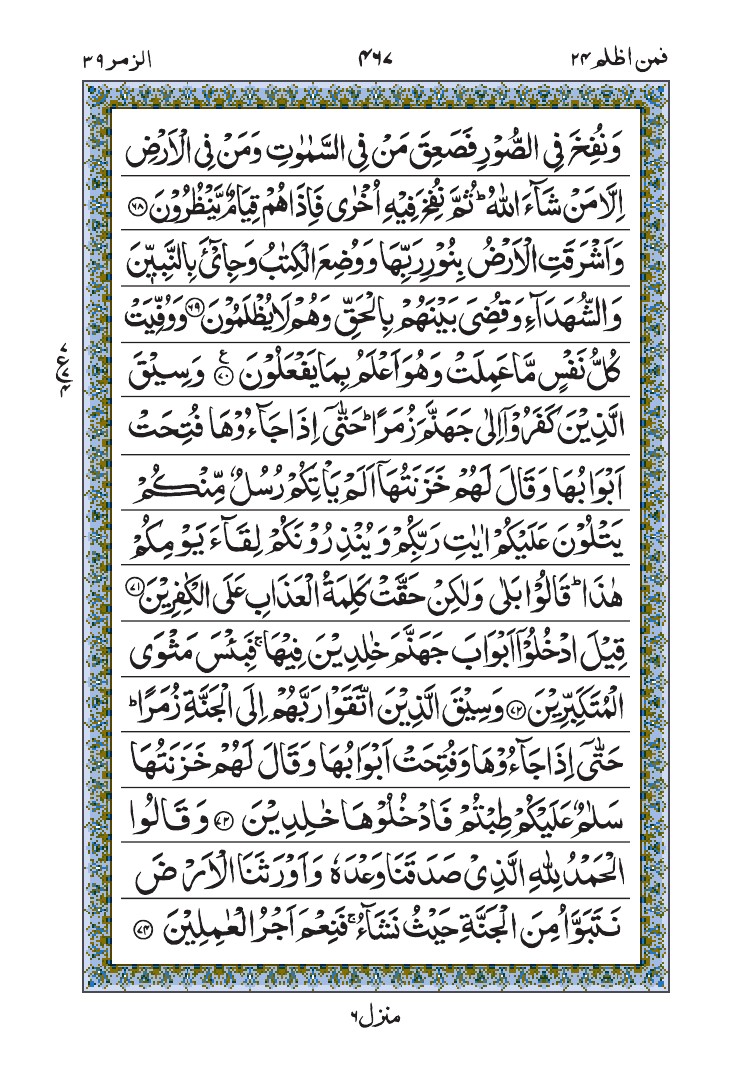 فمن اظلم ٢٤
٤٦٧
الزمر ٣٩
وَنُفِخَ فِی الصُّوۡرِ فَصَعِقَ مَنۡ فِی السَّمٰوٰتِ وَمَنۡ فِی الۡاَرۡضِ
اِلَّا مَنۡ شَآءَ اللّٰهُ ؕ ثُمَّ نُفِخَ فِیۡهِ اُخۡرٰی فَاِذَا هُمۡ قِیَامٌ یَّنۡظُرُوۡنَ ﴿۶۸﴾
وَاَشۡرَقَتِ الۡاَرۡضُ بِنُوۡرِ رَبِّهَا وَوُضِعَ الۡكِتٰبُ وَجِایۡٓءَ بِالنَّبِیّٖنَ
وَالشُّهَدَآءِ وَقُضِیَ بَیۡنَهُمۡ بِالۡحَقِّ وَهُمۡ لَا یُظۡلَمُوۡنَ ﴿۶۹﴾ وَوُفِّیَتۡ
كُلُّ نَفۡسٍ مَّا عَمِلَتۡ وَهُوَ اَعۡلَمُ بِمَا یَفۡعَلُوۡنَ ﴿۷۰﴾ ع وَسِیۡقَ
٧
ع
٧
٤
الَّذِیۡنَ كَفَرُوۡۤا اِلٰی جَهَنَّمَ زُمَرًا ؕ حَتّٰۤی اِذَا جَآءُوۡهَا فُتِحَتۡ
اَبۡوَابُهَا وَقَالَ لَهُمۡ خَزَنَتُهَاۤ اَلَمۡ یَاۡتِكُمۡ رُسُلٌ مِّنۡكُمۡ
یَتۡلُوۡنَ عَلَیۡكُمۡ اٰیٰتِ رَبِّكُمۡ وَیُنۡذِرُوۡنَكُمۡ لِقَآءَ یَوۡمِكُمۡ
هٰذَا ؕ قَالُوۡا بَلٰی وَلٰكِنۡ حَقَّتۡ كَلِمَةُ الۡعَذَابِ عَلَی الۡكٰفِرِیۡنَ ﴿۷۱﴾
قِیۡلَ ادۡخُلُوۡۤا اَبۡوَابَ جَهَنَّمَ خٰلِدِیۡنَ فِیۡهَا ۚ فَبِئۡسَ مَثۡوَی
الۡمُتَكَبِّرِیۡنَ ﴿۷۲﴾ وَسِیۡقَ الَّذِیۡنَ اتَّقَوۡا رَبَّهُمۡ اِلَی الۡجَنَّةِ زُمَرًا ؕ
حَتّٰۤی اِذَا جَآءُوۡهَا وَفُتِحَتۡ اَبۡوَابُهَا وَقَالَ لَهُمۡ خَزَنَتُهَا
سَلٰمٌ عَلَیۡكُمۡ طِبۡتُمۡ فَادۡخُلُوۡهَا خٰلِدِیۡنَ ﴿۷۳﴾ وَقَالُوا
الۡحَمۡدُ لِلّٰهِ الَّذِیۡ صَدَقَنَا وَعۡدَهٗ وَاَوۡرَثَنَا الۡاَرۡضَ
نَتَبَوَّاُ مِنَ الۡجَنَّةِ حَیۡثُ نَشَآءُ ۚ فَنِعۡمَ اَجۡرُ الۡعٰمِلِیۡنَ ﴿۷۴﴾
منزل ٦